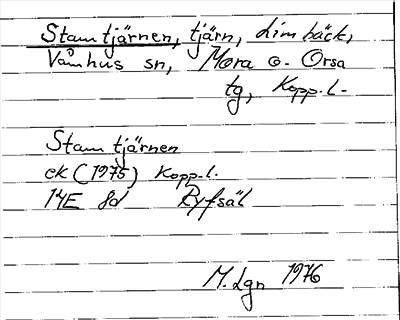 Stamtjärnen, tjärn, Limbäck,
Våmhus sn, Mora o. Orsa
tg, Kopp. l.
Stamtjärnen
ek (1975) Kopp. l.
14E 8d Ryfsäl
M. Lgn 1976